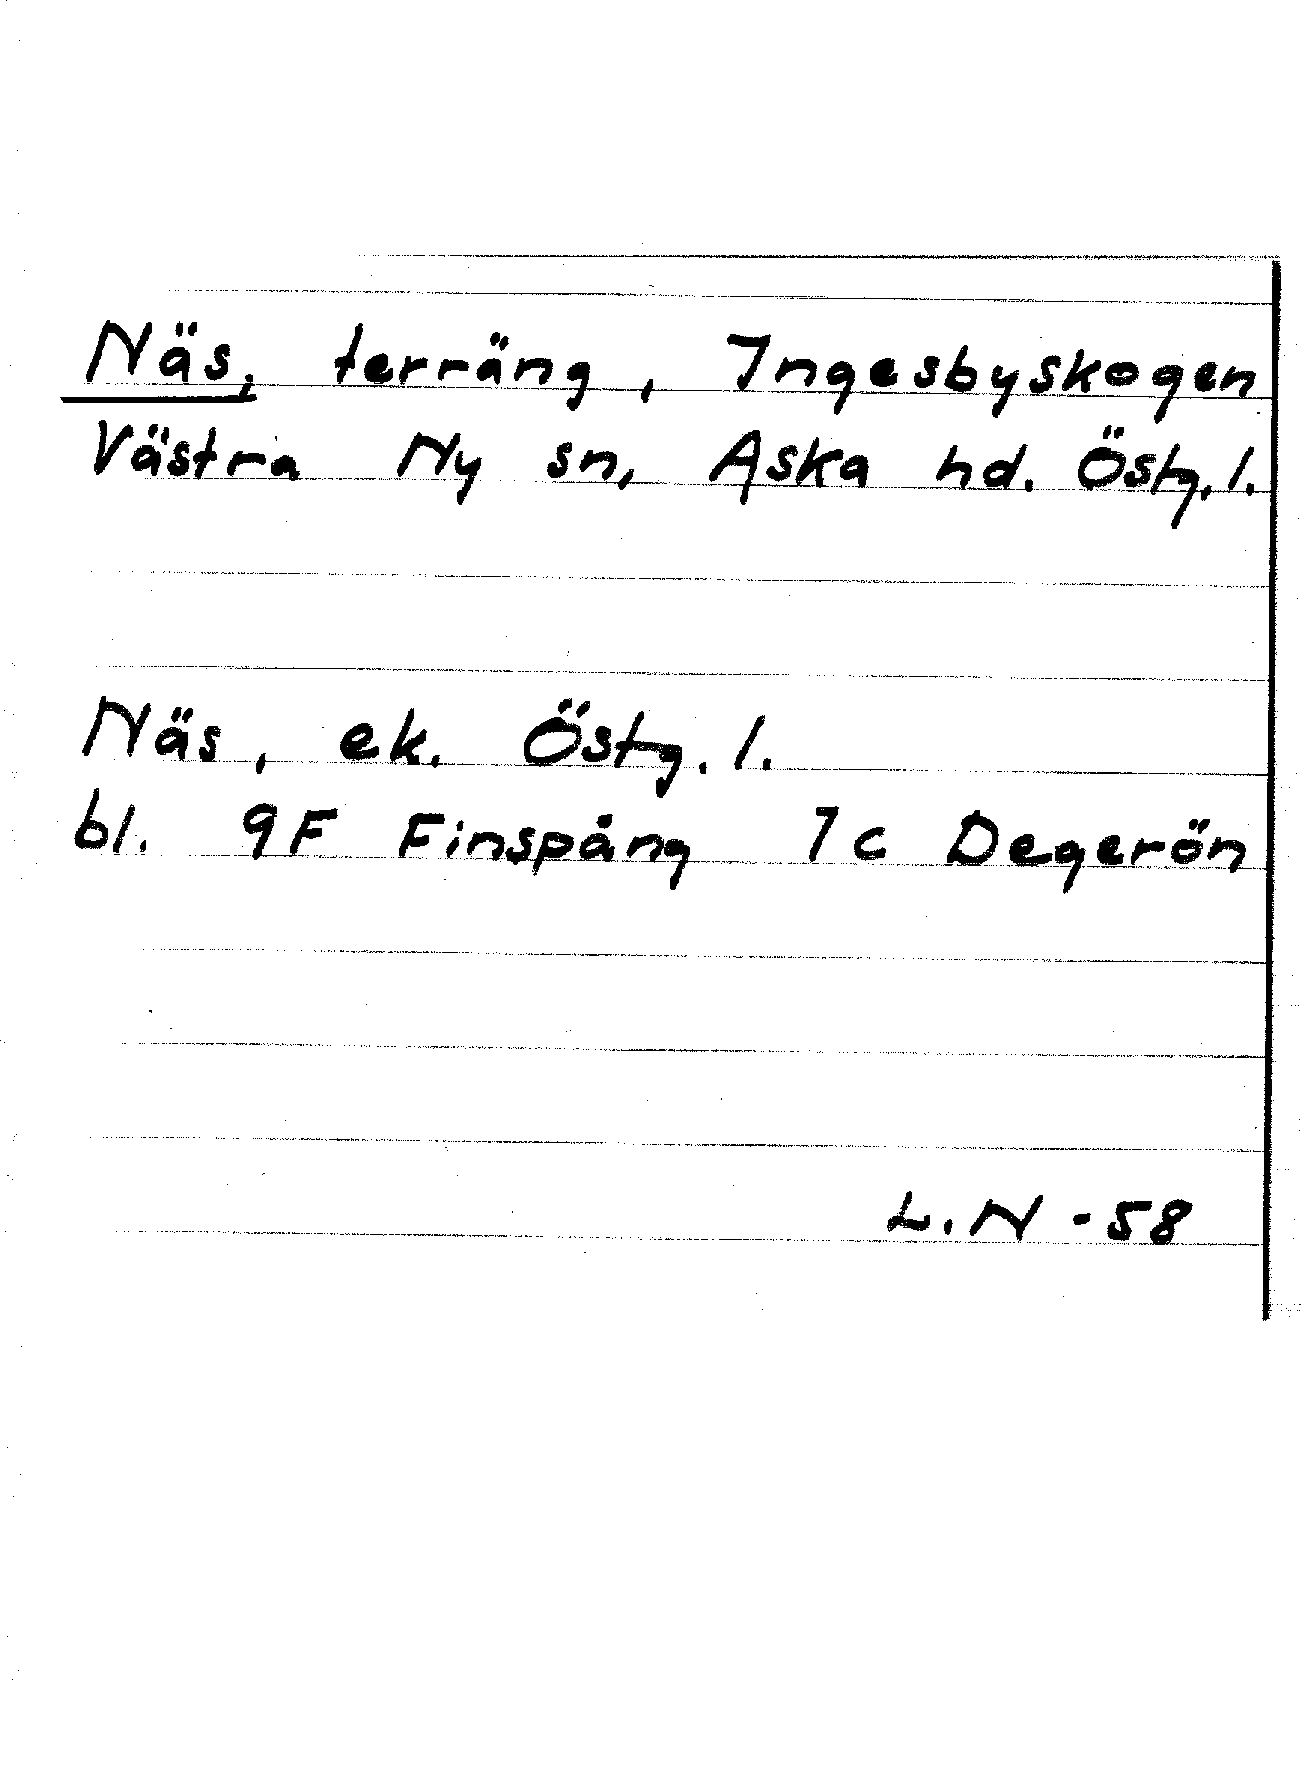 Näs, terräng, Ingesbyskogen
Västra Ny sn, Aska hd. Östg. l.
Näs, ek. Östg. l.
bl. 9F Finspång 7c Degerön
L.N -58